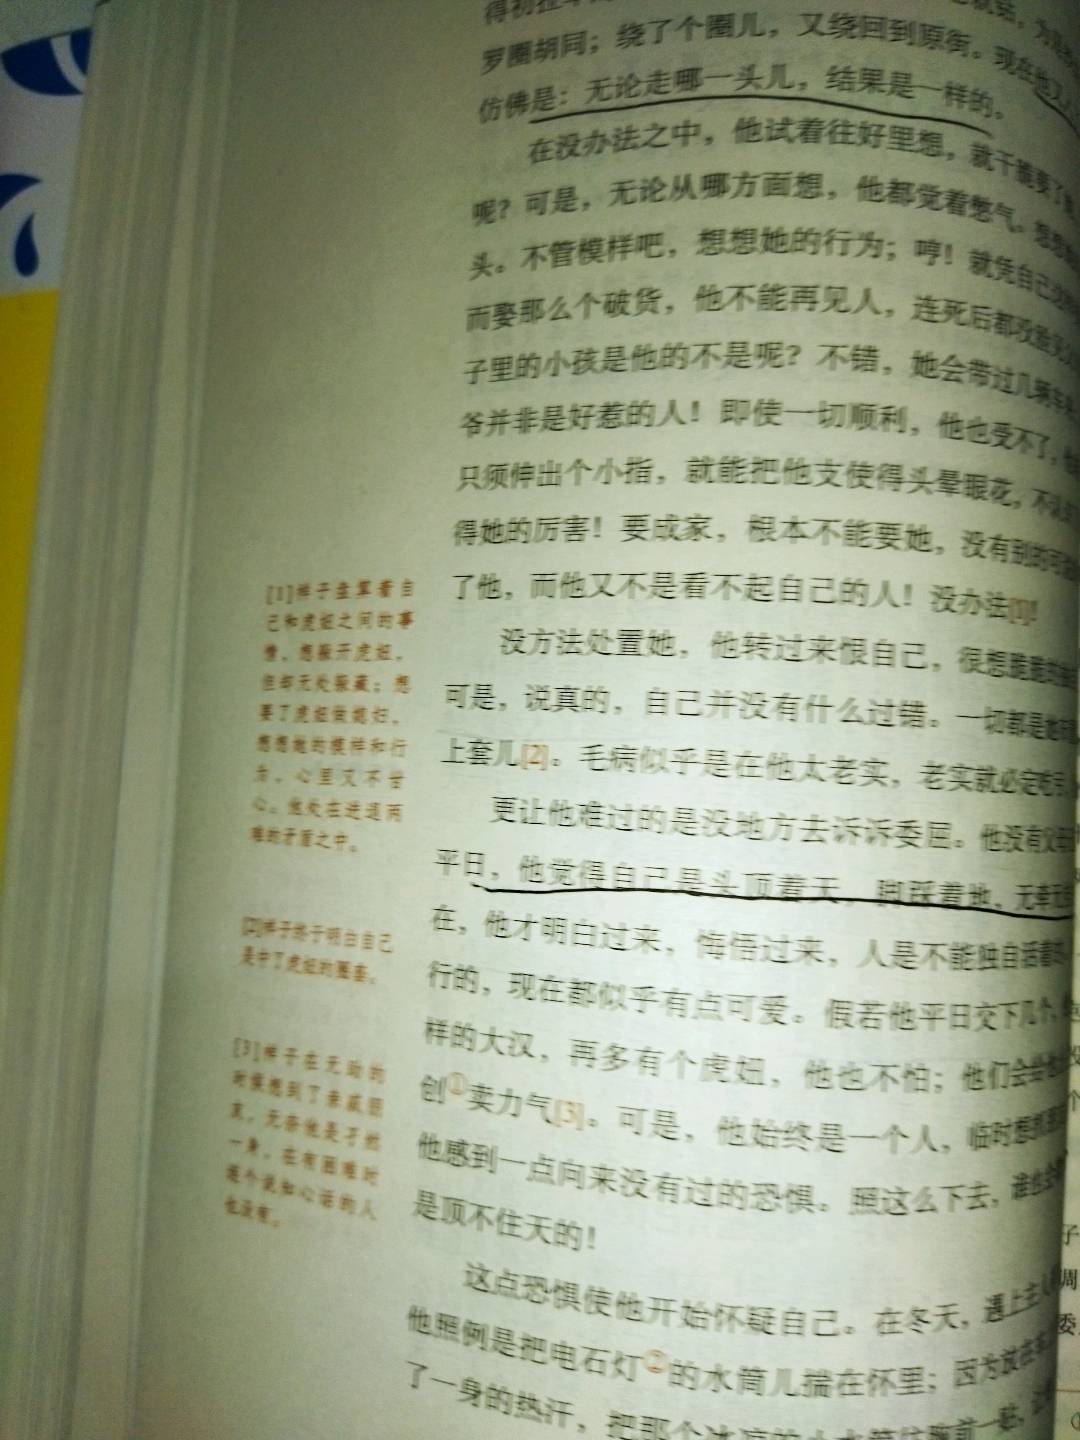 罗圈胡同；绕了个圈儿，又绕回到原街。现在他又
仿佛是：无论走哪一头儿，结果是一样的。
在没办法之中，他试着往好里想，就干脆要了
呢？可是，无论从哪方面想，他都觉着憋气。想想
头。不管模样吧，想想她的行为；哼！就凭自己
而娶那么个破货，他不能再见人，连死后都没脸见
子里的小孩是他的不是呢？不错，她会带过几辆车
爷并非是好惹的人！即使一切顺利，他也受不了，
只须伸出个小指，就能把他支使得头晕眼花，不
得她的厉害！要成家，根本不能要她，没有别的可
了他，而他又不是看不起自己的人！没办法[1]！
没方法处置她，他转过来恨自己，很想脆脆的
可是，说真的，自己并没有什么过错。一切都是她
上套儿[2]。毛病似乎是在他太老实，老实就必定吃亏
更让他难过的是没地方去诉诉委屈。他没有父母
平日，他觉得自己是头顶着天，脚踩着地，无牵无
在，他才明白过来，悔悟过来，人是不能独自活着
行的，现在都似乎有点可爱。假若他平日交下几个，
样的大汉，再多有个虎妞，他也不怕；他们会给他
创①卖力气[3]。可是，他始终是一个人，临时想抓
他感到一点向来没有过的恐惧。照这么下去，谁也会
是顶不住天的！
这点恐惧使他开始怀疑自己。在冬天，遇上主人
他照例是把电石灯②的水筒儿揣在怀里；因为放在
了一身的热汗，把那个冰凉的小水筒往胸前一贴，
[1]祥子盘算着自
己和虎妞之间的事
情，想躲开虎妞，
但却无处躲藏；想
要了虎妞做媳妇，
想想她的模样和行
为，心里又不甘
心。他处在进退两
难的矛盾之中。
[2]祥子终于明白自己
是中了虎妞的圈套。
[3]祥子在无助的
时候想到了亲戚朋
友，无奈他是孑然
一身，在有困难时
连个说知心话的人
也没有。